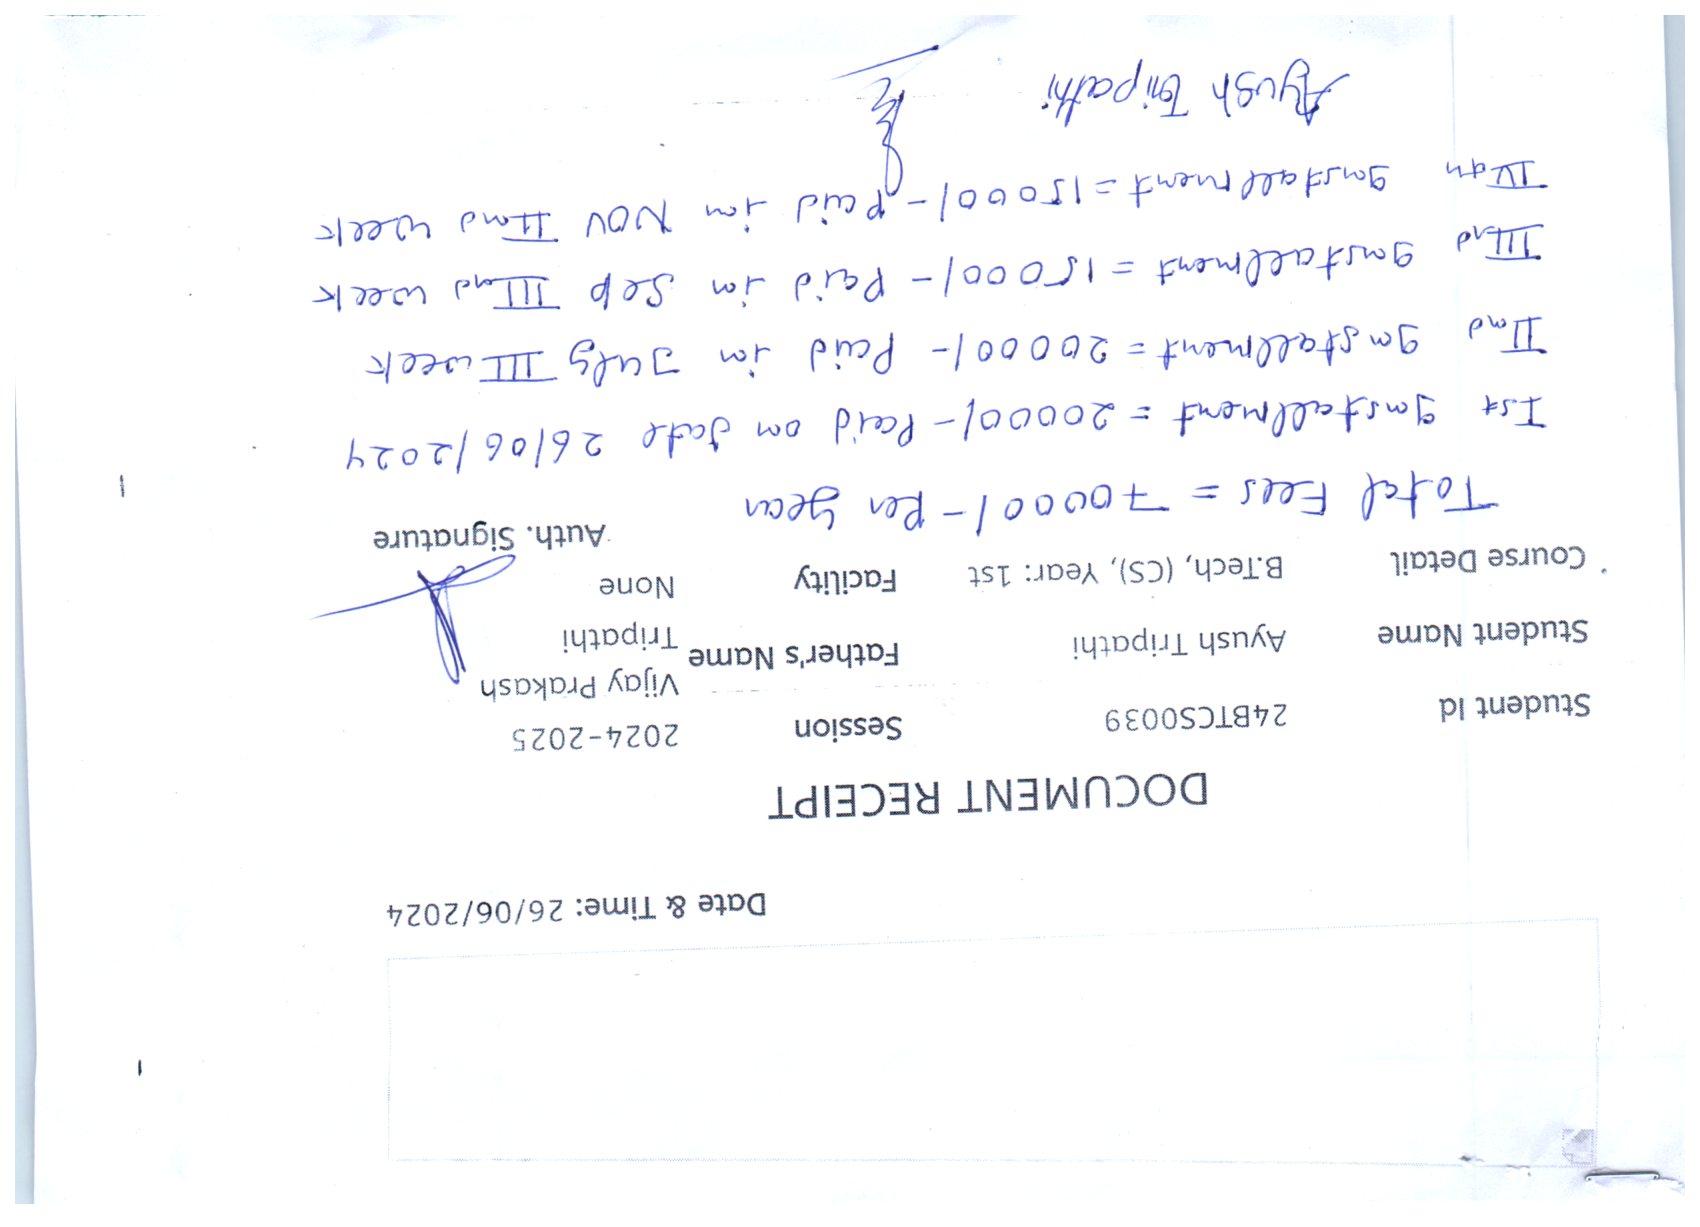 Date & Time: 26/06/2024
DOCUMENT RECEIPT
Student Id 24BTCS0039 Session 2024-2025
Student Name Ayush Tripathi Father's Name Vijay Prakash
Tripathi
Course Detail B.Tech, (CS), Year: 1st Facility None
Auth. Signature
Total Fees = 70000/- Per year
Ist Installment = 20000/- Paid on date 26/06/2024
IInd Installment = 20000/- Paid in July III week
IIIrd Installment = 15000/- Paid in Sep IIInd week
IVth Installment = 15000/- Paid in NOV IInd week
Ayush Tripathi